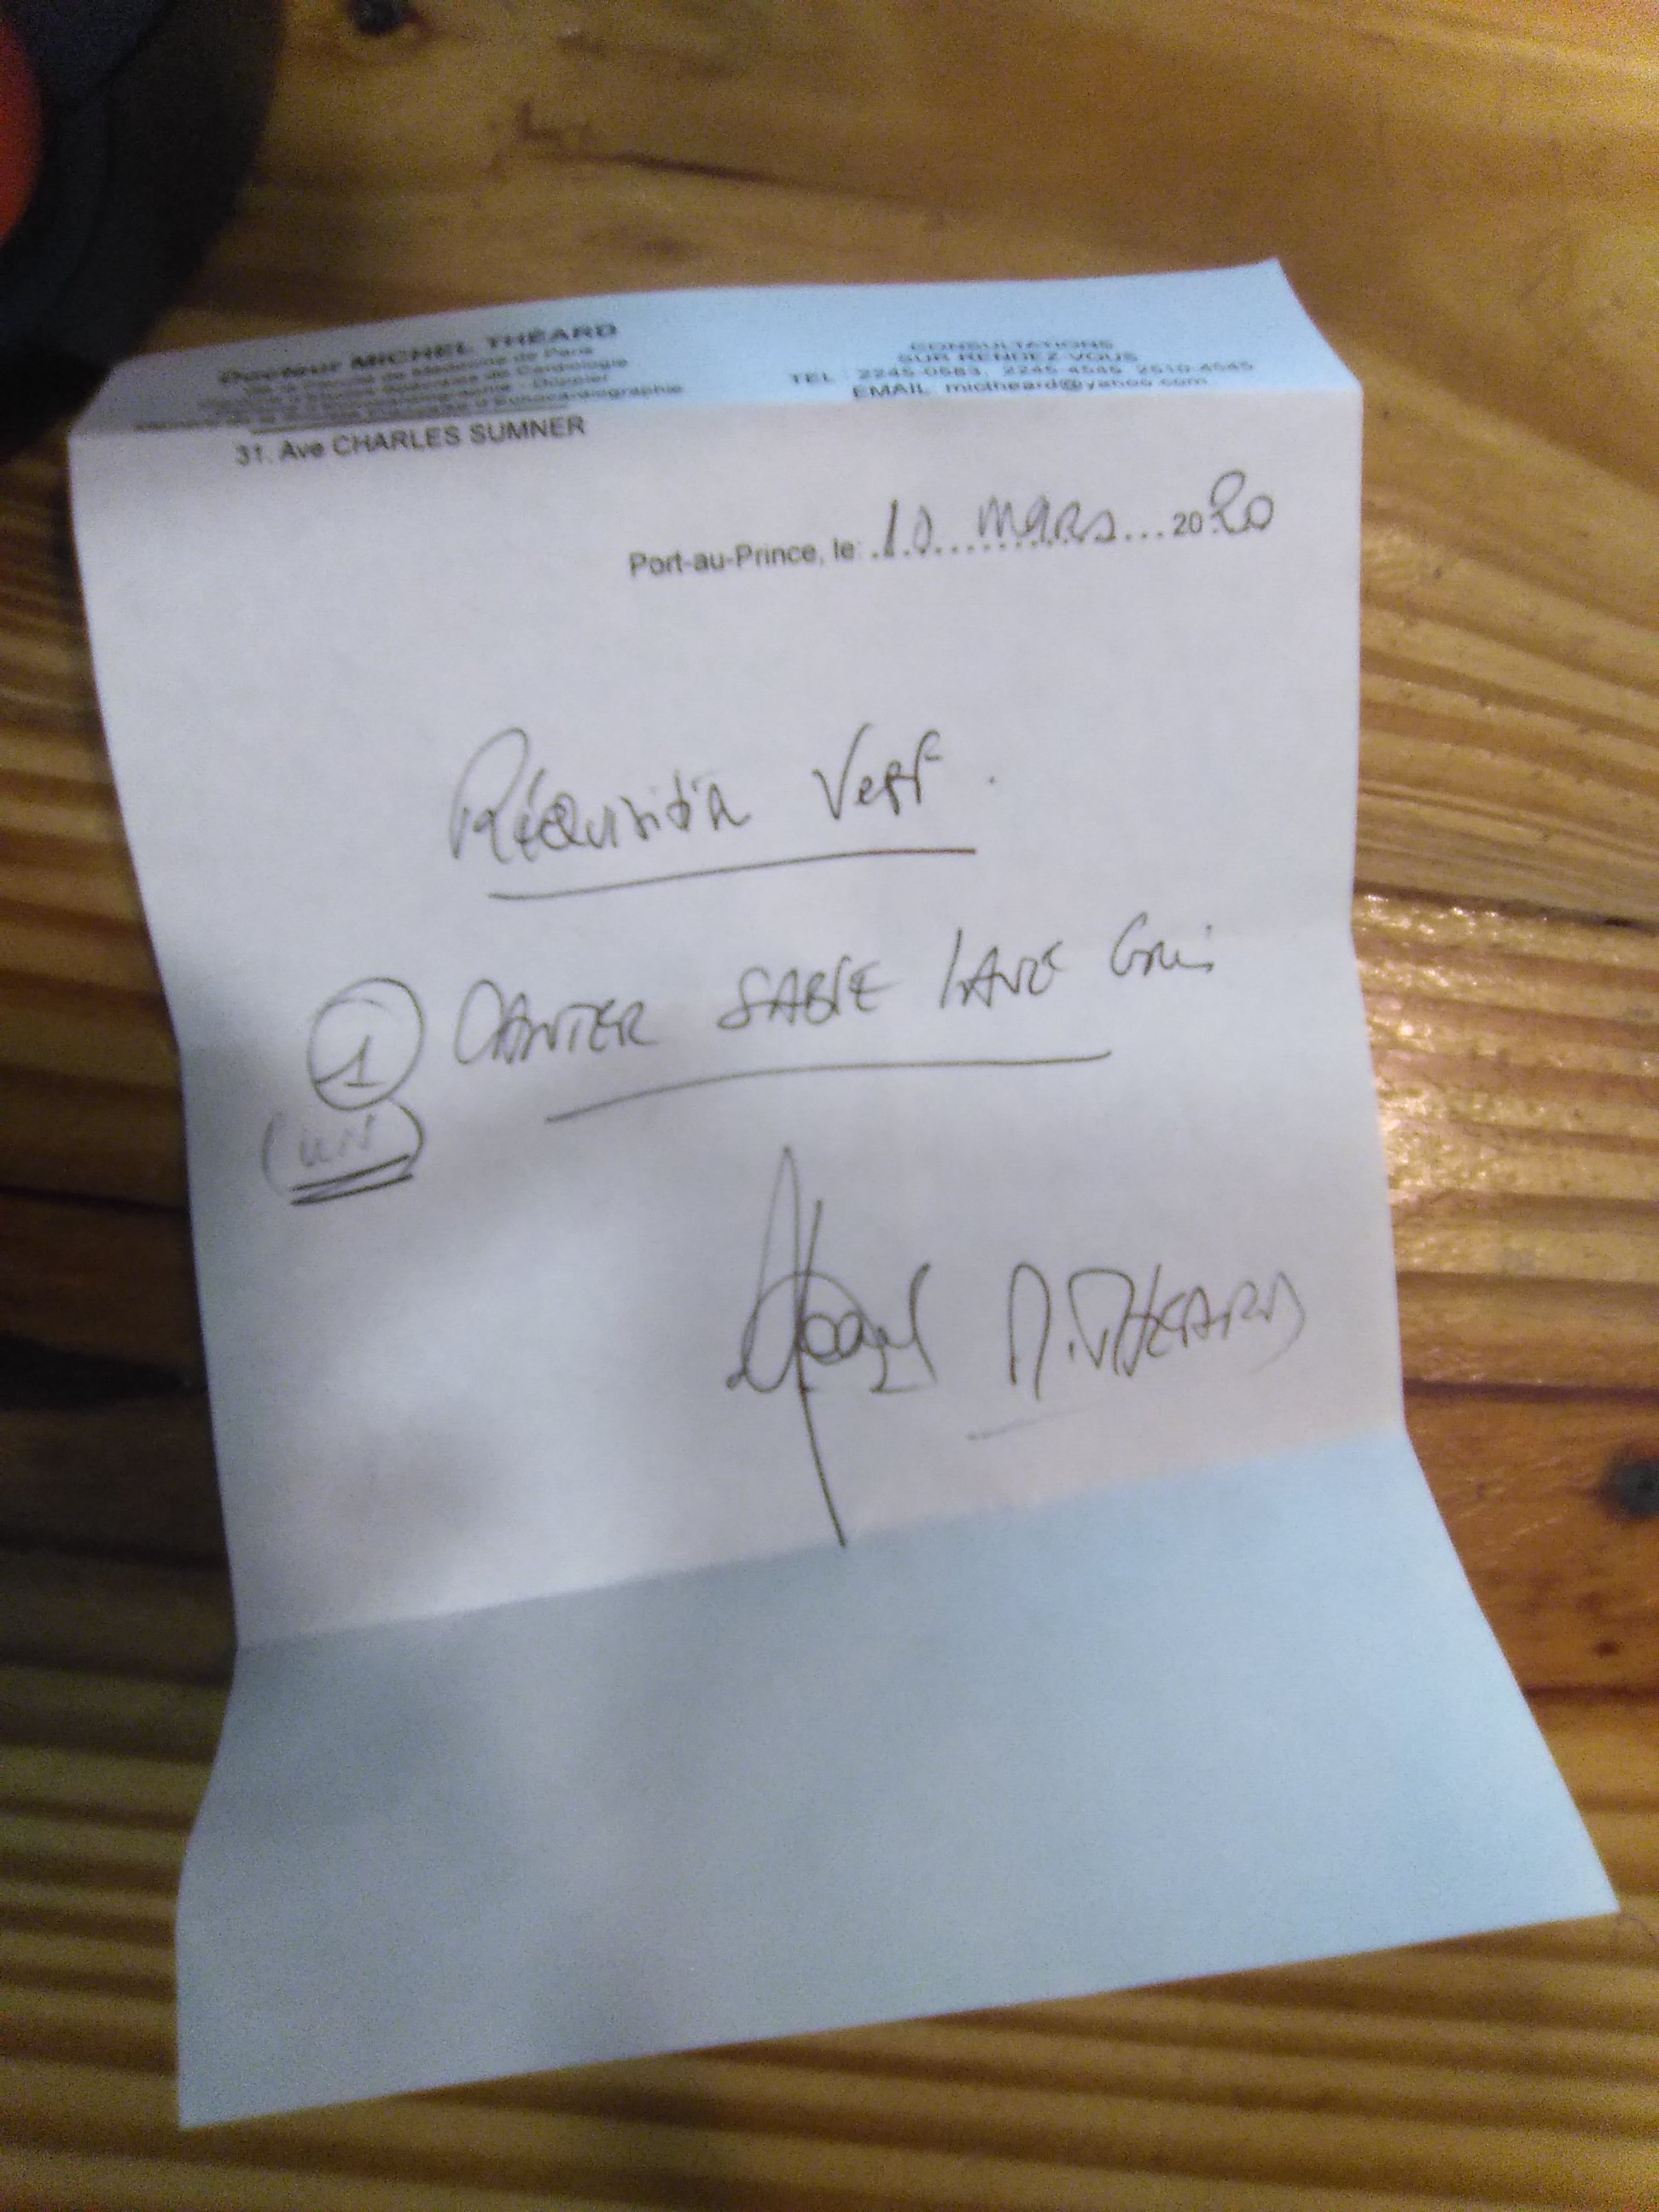 Docteur MICHEL THÉARD
de la Faculté de Médecine de Paris
de Cardiologie
Doppler
d'Echocardiographie
31. Ave CHARLES SUMNER
CONSULTATIONS
SUR RENDEZ-VOUS
TEL : 2245-0583, 2245-4545 2510-4545
EMAIL mictheard@yahoo.com
Port-au-Prince, le: 10 mars 2020
Réquisition
1 CANTER SABLE LAVE Gris
(un)
M. THEARD